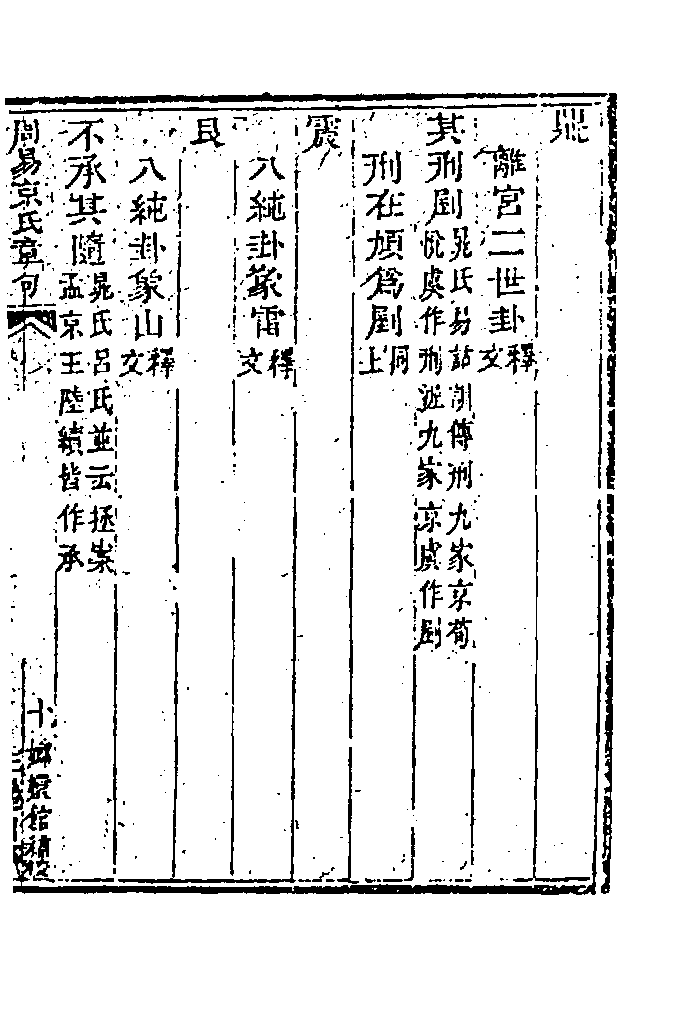 鼎
離宮二世卦釋文
其刑剭晁氏易詁訓傳刑九家京荀悅虞作刑渥九家京虞作剭
刑在頄爲剭同上
震
八純卦象雷釋文
艮
八純卦象山釋文
不承其隨晁氏呂氏並云拯案孟京王陸績皆作承
周易京氏章句
十 嫏嬛館補校